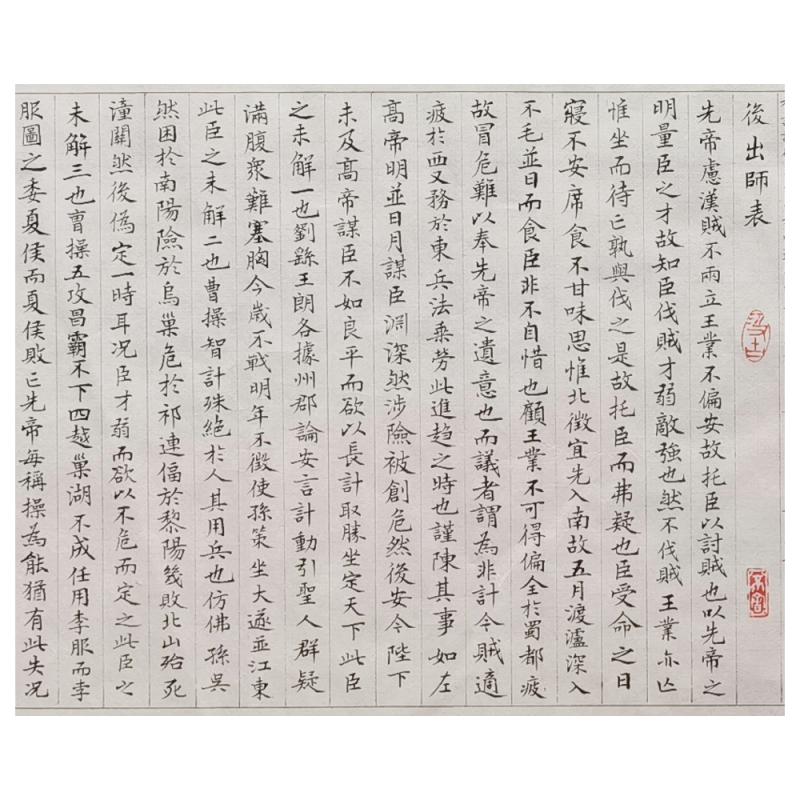 後出師表
先帝慮漢賊不兩立王業不偏安故托臣以討賊也以先帝之
明量臣之才故知臣伐賊才弱敵強也然不伐賊王業亦亡
惟坐而待亡孰與伐之是故托臣而弗疑也臣受命之日
寢不安席食不甘味思惟北徵宜先入南故五月渡瀘深入
不毛並日而食臣非不自惜也顧王業不可得偏全於蜀都疲
故冒危難以奉先帝之遺意也而議者謂為非計今賊適
疲於西又務於東兵法乘勞此進趋之時也謹陳其事如左
高帝明並日月謀臣淵深然涉險被創危然後安今陛下
未及高帝謀臣不如良平而欲以長計取勝坐定天下此臣
之未解一也劉繇王朗各據州郡論安言計動引聖人群疑
滿腹衆難塞胸今歲不戰明年不徵使孫策坐大遂並江東
此臣之未解二也曹操智計殊絕於人其用兵也仿佛孫吳
然困於南陽險於烏巢危於祁連偪於黎陽幾敗北山殆死
潼關然後偽定一時耳况臣才弱而欲以不危而定之此臣之
未解三也曹操五攻昌霸不下四越巢湖不成任用李服而李
服圖之委夏侯而夏侯敗亡先帝每稱操為能猶有此失况